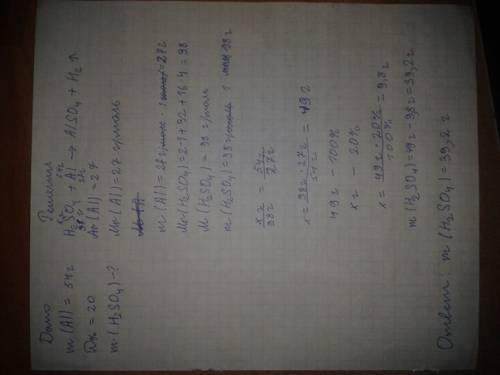 Дано
m(Al) = 54г
Wпр = 20
m(H₂SO₄)-?
Решение
xг 54г
H₂SO₄ + Al → AlSO₄ + H₂↑
98г 27г
Ar(Al) = 27
Mr(Al)=27 г/моль
m(Al)=27г/моль · 1моль=27г
Mr(H₂SO₄)=2·1+32+16·4=98
M(H₂SO₄) = 98 г/моль
m(H₂SO₄)=98г/моль · 1 моль=98г
xг/98г = 54г/27г
x = 98г · 27г / 54г = 49г
49г - 100%
xг - 20%
x = 49г · 20% / 100% = 9,8г
m(H₂SO₄)=49г-9,8г=39,2г
Ответ: m(H₂SO₄)=39,2г